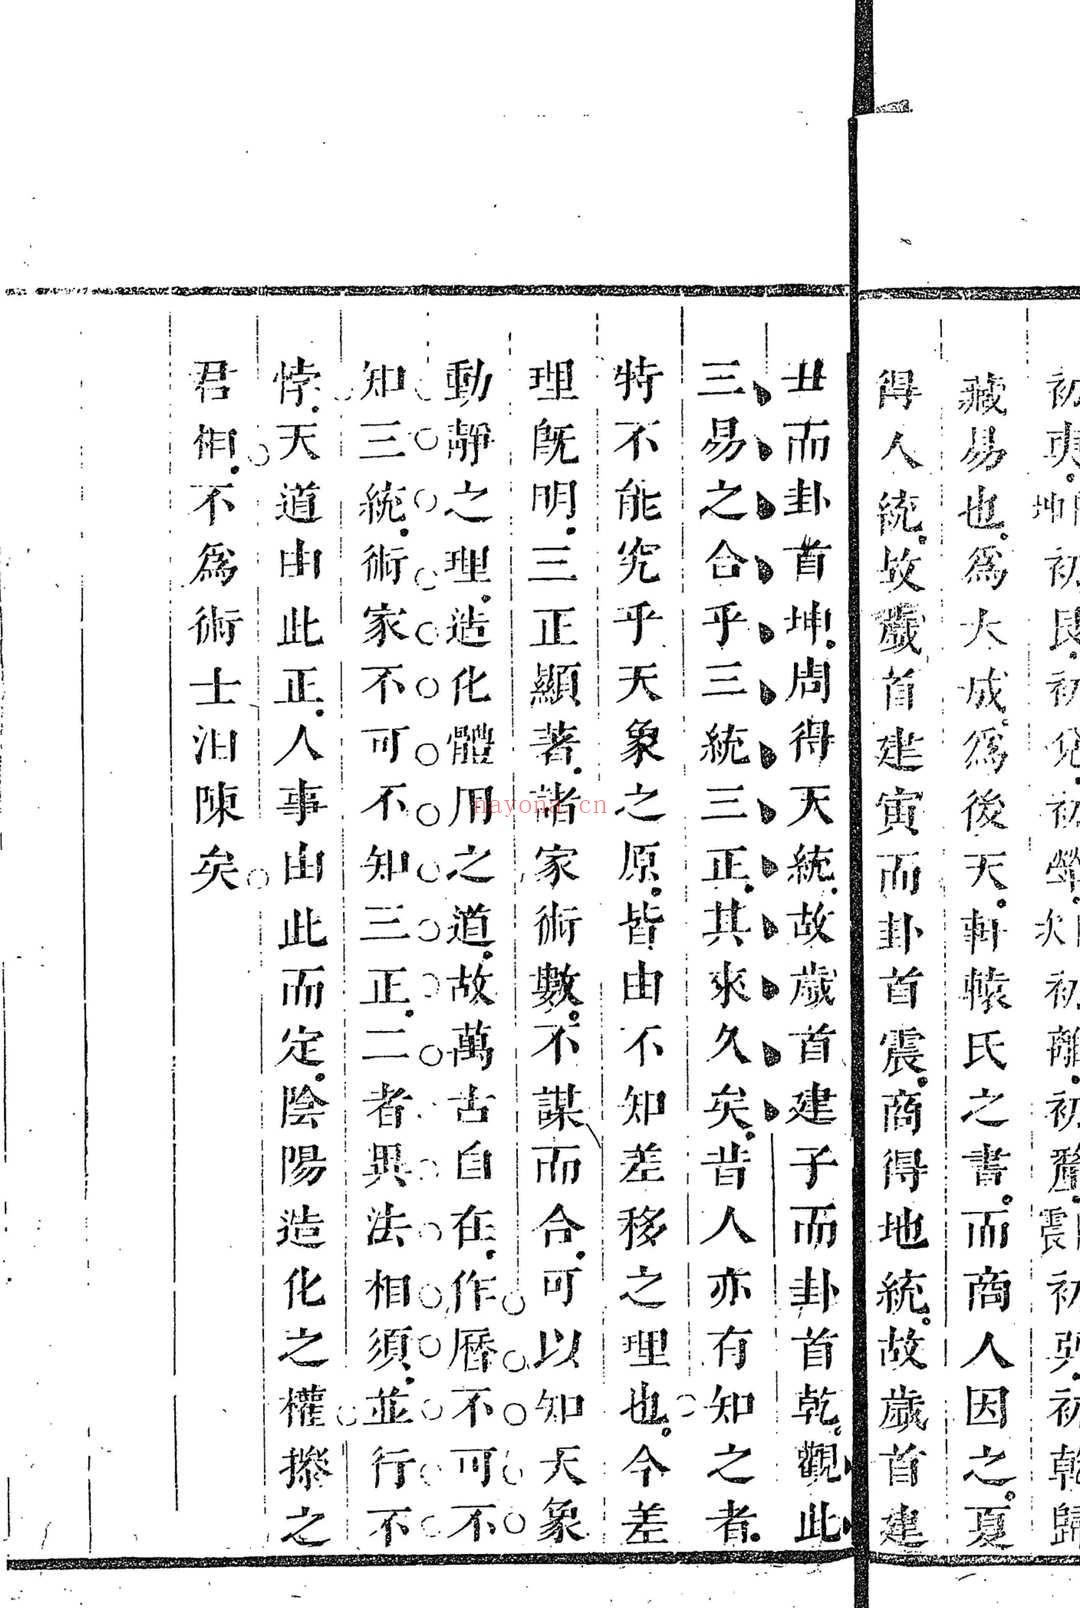 初奭初艮初兌初犖初離初釐震初巽初乾歸
藏易也爲大成爲後天軒轅氏之書而商人因之夏
得人統故歲首建寅而卦首震商得地統故歲首建
丑而卦首坤周得天統故歲首建子而卦首乾觀此
三易之合乎三統三正其來久矣昔人亦有知之者
特不能究乎天象之原皆由不知差移之理也今差
理旣明三正顯著諸家術數不謀而合可以知天象
動靜之理造化體用之道故萬古自在作曆不可不
知三統術家不可不知三正二者異法相須並行不
悖天道由此正人事由此而定陰陽造化之權操之
君相不爲術士汨陳矣
nayona.cn